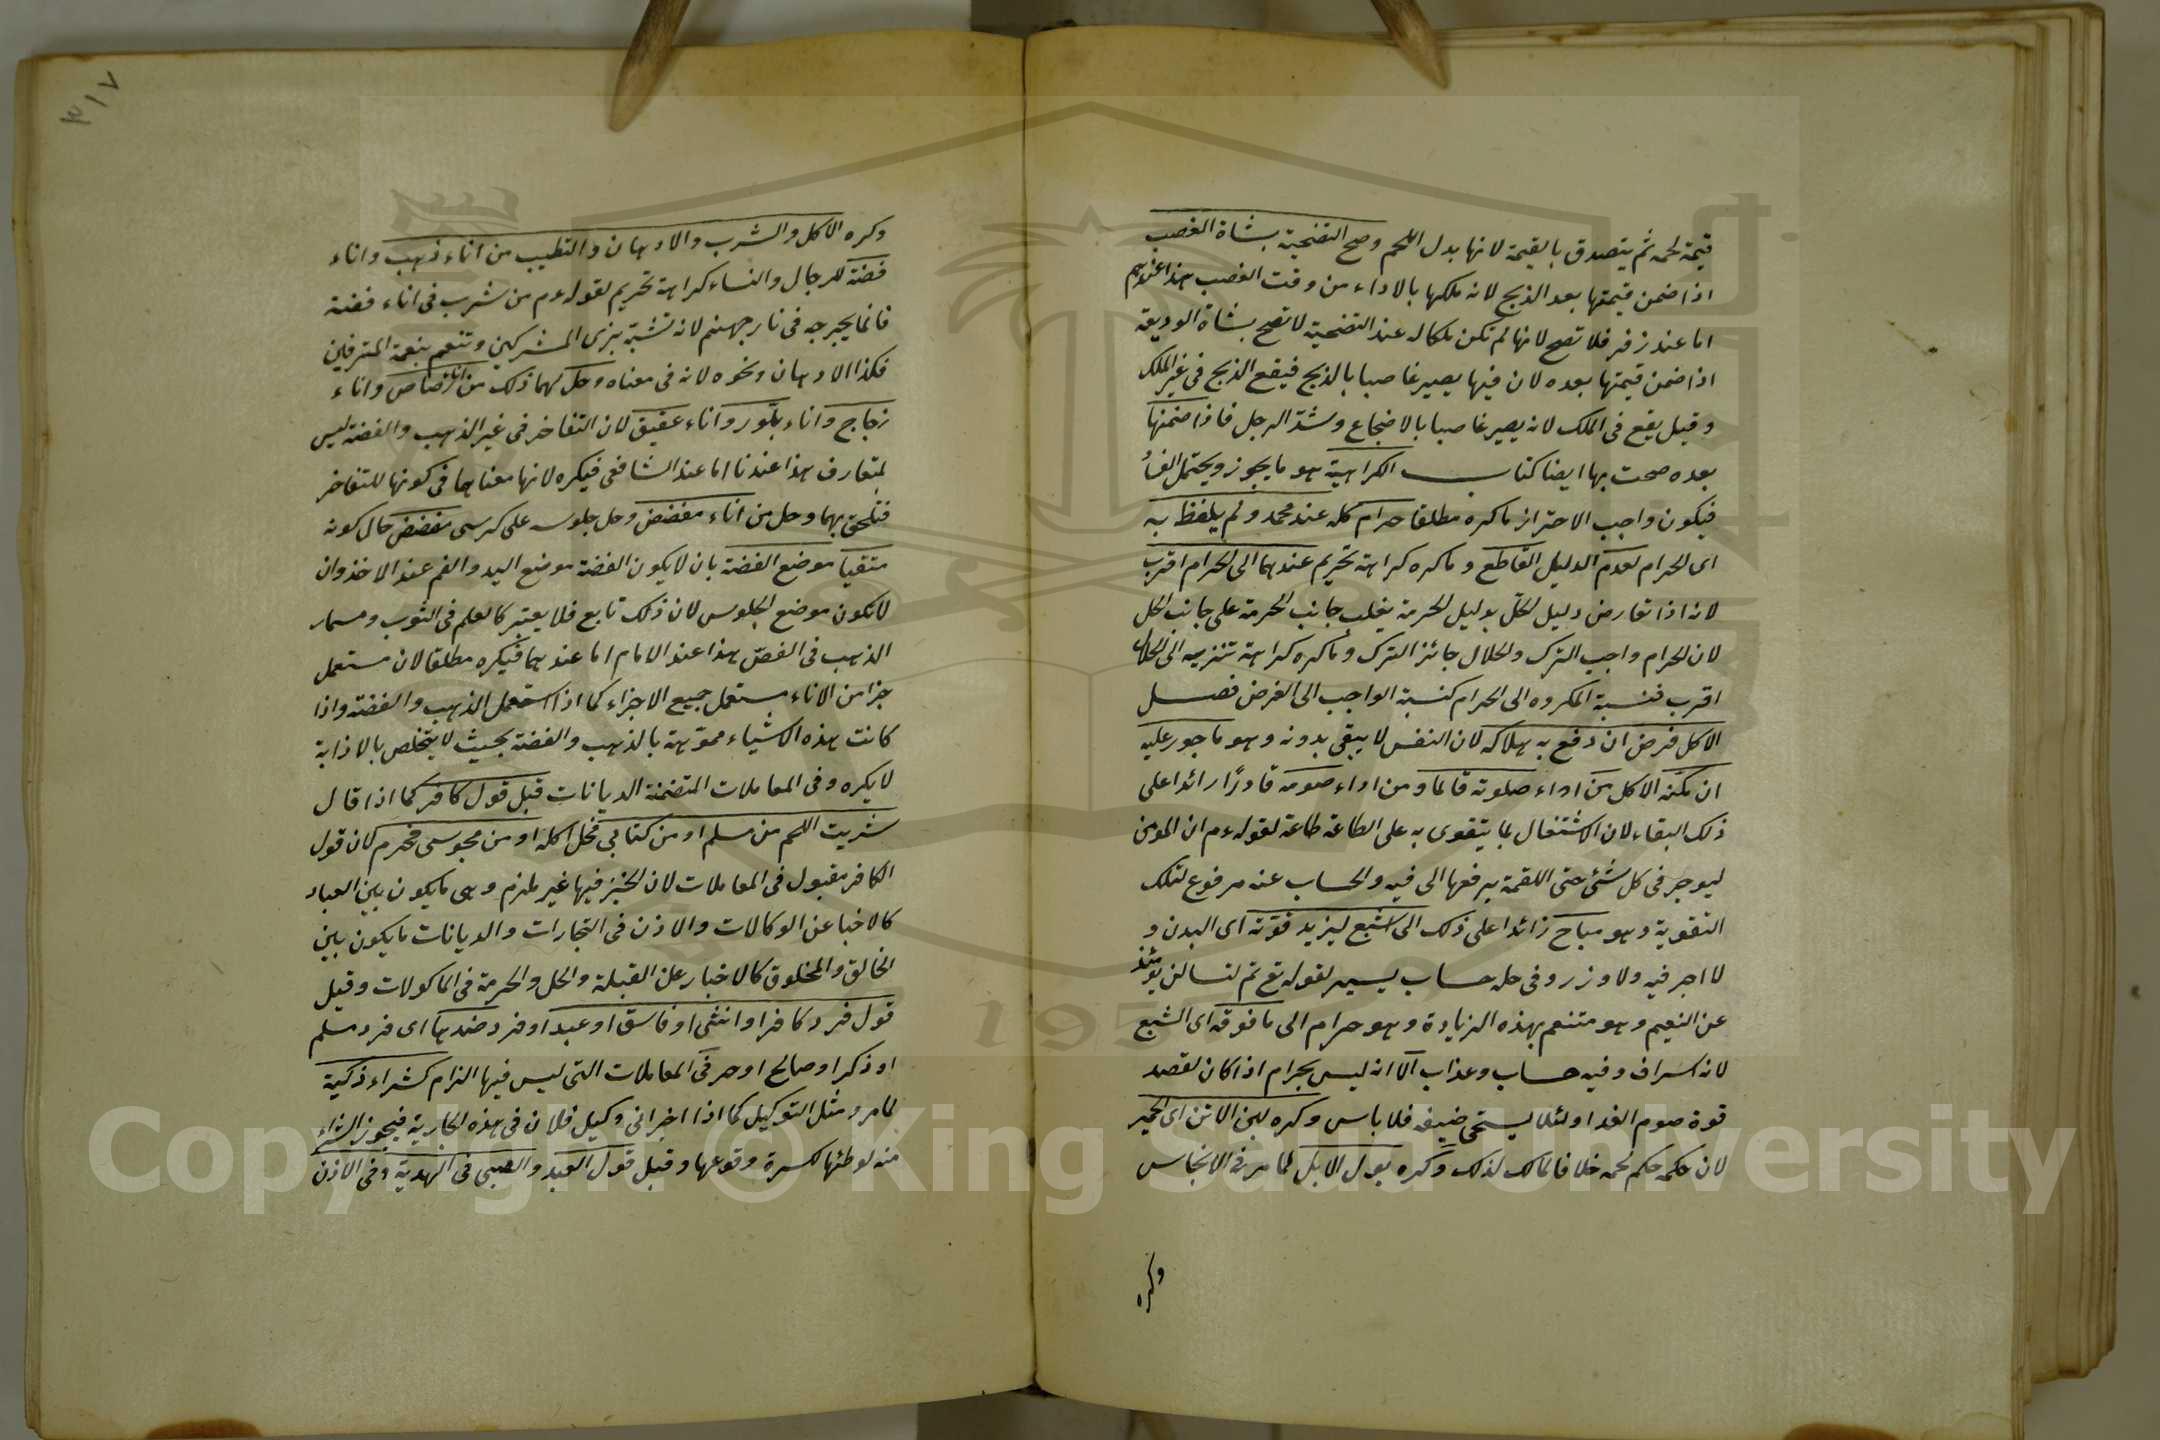 قيمة لحمه ثم يتصدق بالقيمة لانها بدل اللحم وصح التضحية بشاة الغصب
اذا ضمن قيمتها بعد الذبح لانه ملكها بالاداء من وقت الغصب هذا عندهم
اما عند زفر فلا تصح لانها لم تكن ملكا له عند التضحية لا تصح بشاة الوديعة
اذا ضمن قيمتها بعده لان فيها يصير غاصبا بالذبح فيقع الذبح في غير الملك
وقيل يقع في الملك لانه يصير غاصبا بالاضجاع وشد الرجل فاذا ضمنها
بعده صحت بها ايضا كتاب الكراهية هو ما يجوز ويحتمل
فيكون واجب الاحتراز ما كره مطلقا حرام كله عند محمد ولم يلفظ به
اى الحرام لعدم الدليل القاطع وما كره كراهة تحريم عندهما الى الحرام اقرب
لانه اذا تعارض دليل الحل بدليل الحرمة يغلب جانب الحرمة على جانب الحل
لان الحرام واجب الترك والحلال جائز الترك وما كره كراهة تنزيه الى الحلال
اقرب فنسبة المكروه الى الحرام كنسبة الواجب الى الفرض فصل
الاكل فرض ان دفع به هلاكه لان النفس لا يبقى بدونه وهو ماجور عليه
ان مكنه الاكل من اداء صلوته قائما ومن اداء صومه قادرا زائدا على
ذلك البقاء لان الاشتغال بما يتقوى به على الطاعة طاعة لقوله عم ان المومن
ليوجر في كل شئ حتى اللقمة يرفعها الى فيه والحساب عنه مرفوع لتلك
التقوية وهو مباح زائدا على ذلك الى الشبع ليزيد قوته اى البدن و
لا اجر فيه ولا وزر وفي حله حساب يسير لقوله تع ثم لتسالن يومئذ
عن النعيم وهو متنعم بهذه الزيادة وهو حرام الى ما فوقه اى الشبع
لانه اسراف وفيه حساب وعذاب الا انه ليس بحرام اذا كان لقصد
قوة صوم الغد او لئلا يستحى ضيفه فلا باس وكره لبن الاتن اى الحمير
لان حكمه حكم لحمه خلافا لمالك لذلك وكره بول الابل لما مر في الانجاس
وكره
٣١٧
وكره الاكل والشرب والادهان والتطيب من اناء ذهب واناء
فضة للرجال والنساء كراهة تحريم لقوله عم من شرب في اناء فضة
فانما يجرجر في نار جهنم لانه تشبه بزى المشركين وتنعم بنعمة المترفين
فكذا الادهان ونحوه لانه في معناه وحل لهما ذلك من اناء رصاص واناء
زجاج واناء بلور واناء عقيق لان التفاخر في غير الذهب والفضة ليس
بمتعارف هذا عندنا اما عند الشافعي فيكره لانها معناهما في كونها للتفاخر
فتلحق بهما وحل من اناء مفضض وحل جلوسه على كرسى مفضض حال كونه
متقيا موضع الفضة بان لا يكون الفضة موضع اليد والفم عند الاخذ وان
لا يكون موضع الجلوس لان ذلك تابع فلا يعتبر كالعلم في الثوب ومسمار
الذهب في الفص هذا عند الامام اما عندهما فيكره مطلقا لان مستعمل
جزا من الاناء مستعمل جميع الاجزاء كما اذا استعمل الذهب والفضة واذا
كانت هذه الاشياء مموهة بالذهب والفضة بحيث لا يتخلص بالاذابة
لا يكره وفي المعاملات المتضمنة الديانات قبل قول كافر كما اذا قال
شريت اللحم من مسلم او من كتابى فحل اكله او من مجوسى فحرم لان قول
الكافر مقبول في المعاملات لان الخبر فيها غير ملزم وهى ما يكون بين العباد
كالاخبار عن الوكالات والاذن في التجارات والديانات ما يكون بين
الخالق والمخلوق كالاخبار عن القبلة والحل والحرمة في الماكولات وقبل
قول فرد كافر او انثى او فاسق او عبد او فرد ضدها اى فرد مسلم
او ذكر او صالح او حر في المعاملات التى ليس فيها الزام كشراء ذكية
لما مر ومثل التوكيل كما اذا اخبر انى وكيل فلان في هذه الجارية فيجوز الشراء
منه لوطئها لكسرة وقوعها وقبل قول العبد والصبى في الهدية وفي الاذن
Copyright © King Saud University
1957